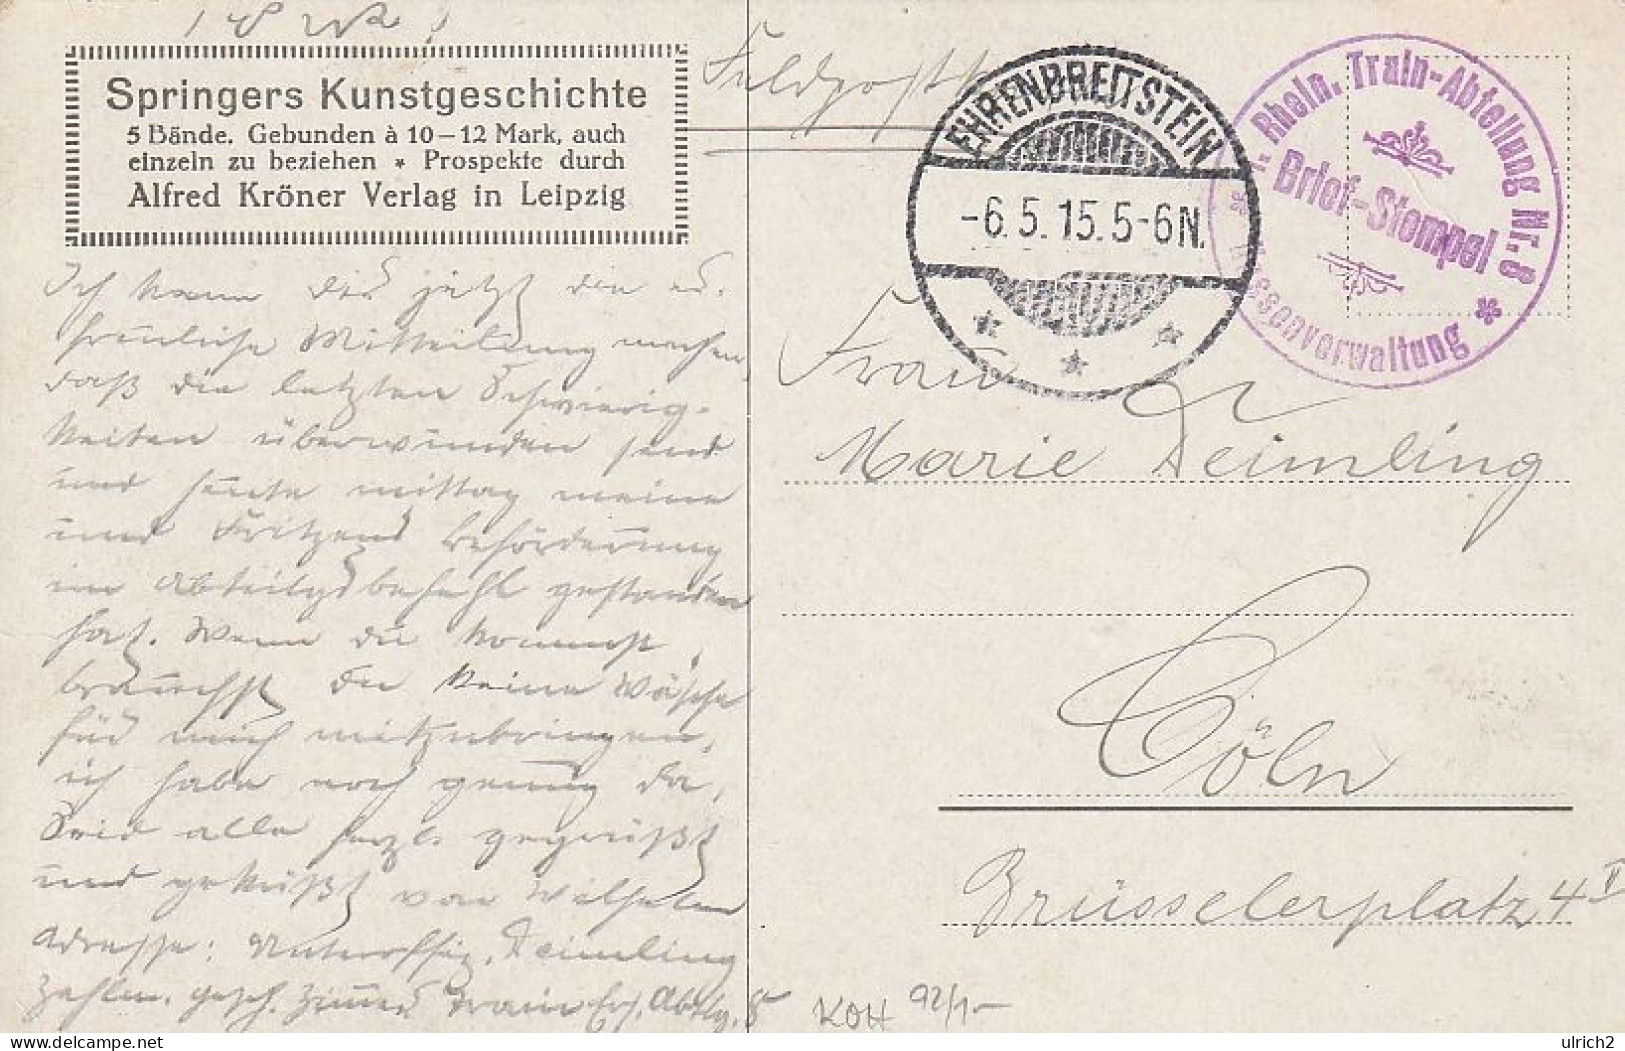 Springers Kunstgeschichte
5 Bände. Gebunden à 10–12 Mark, auch
einzeln zu beziehen * Prospekte durch
Alfred Kröner Verlag in Leipzig
Feldpost
EHRENBREITSTEIN
-6.5.15.5-6N.
* * *
I. Rhein. Train-Abteilung Nr. 8
Brief-Stempel
* Kassenverwaltung *
Ich kann Dir jetzt die er-
freuliche Mitteilung machen,
daß die letzten Schwierig-
keiten überwunden sind
und heute mittag meine
und Fritzens Beförderung
im Abteilgsbefehl gestanden
hat. Wenn Du kommst,
brauchst Du keine Wäsche
für mich mitzubringen,
ich habe noch genug da.
Seid alle herzl. gegrüßt
und geküßt von Wilhelm
Adresse: Unteroffiz. Deimling
Zahlm. gesch. Zimmer Train Ers. Abtlg. 8
Frau
Marie Deimling
Cöln
Brüsselerplatz 4 II
KOH 92/1-
delcampe.net
ulrich2